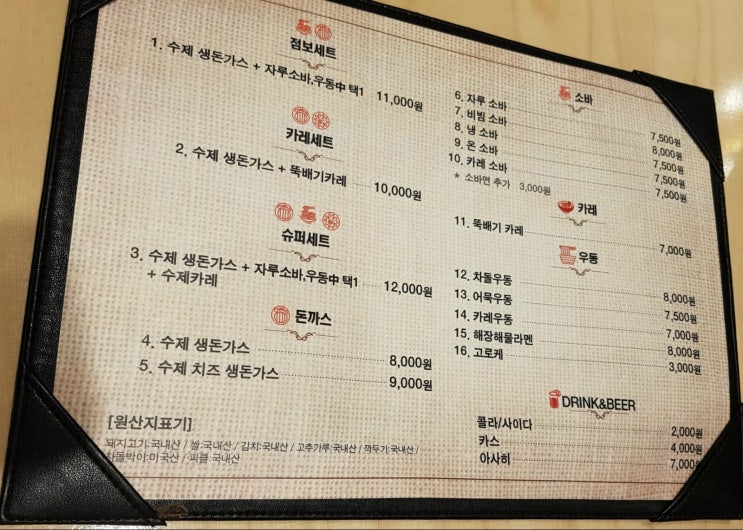 점보세트
1. 수제 생돈가스 + 자루소바,우동中 택1 11,000원
카레세트
2. 수제 생돈가스 + 뚝배기카레 10,000원
슈퍼세트
3. 수제 생돈가스 + 자루소바,우동中 택1 12,000원
+ 수제카레
돈까스
4. 수제 생돈가스 8,000원
5. 수제 치즈 생돈가스 9,000원
[원산지표기]
돼지고기:국내산 / 쌀:국내산 / 김치:국내산 / 고추가루:국내산 / 깍두기:국내산 /
차돌박이:미국산 / 피클:국내산
소바
6. 자루 소바 7,500원
7. 비빔 소바 8,000원
8. 냉 소바 7,500원
9. 온 소바 7,500원
10. 카레 소바 7,500원
* 소바면 추가 3,000원
카레
11. 뚝배기 카레 7,000원
우동
12. 차돌우동 8,000원
13. 어묵우동 7,500원
14. 카레우동 7,000원
15. 해장해물라멘 8,000원
16. 고로케 3,000원
DRINK&BEER
콜라/사이다 2,000원
카스 4,000원
아사히 7,000원